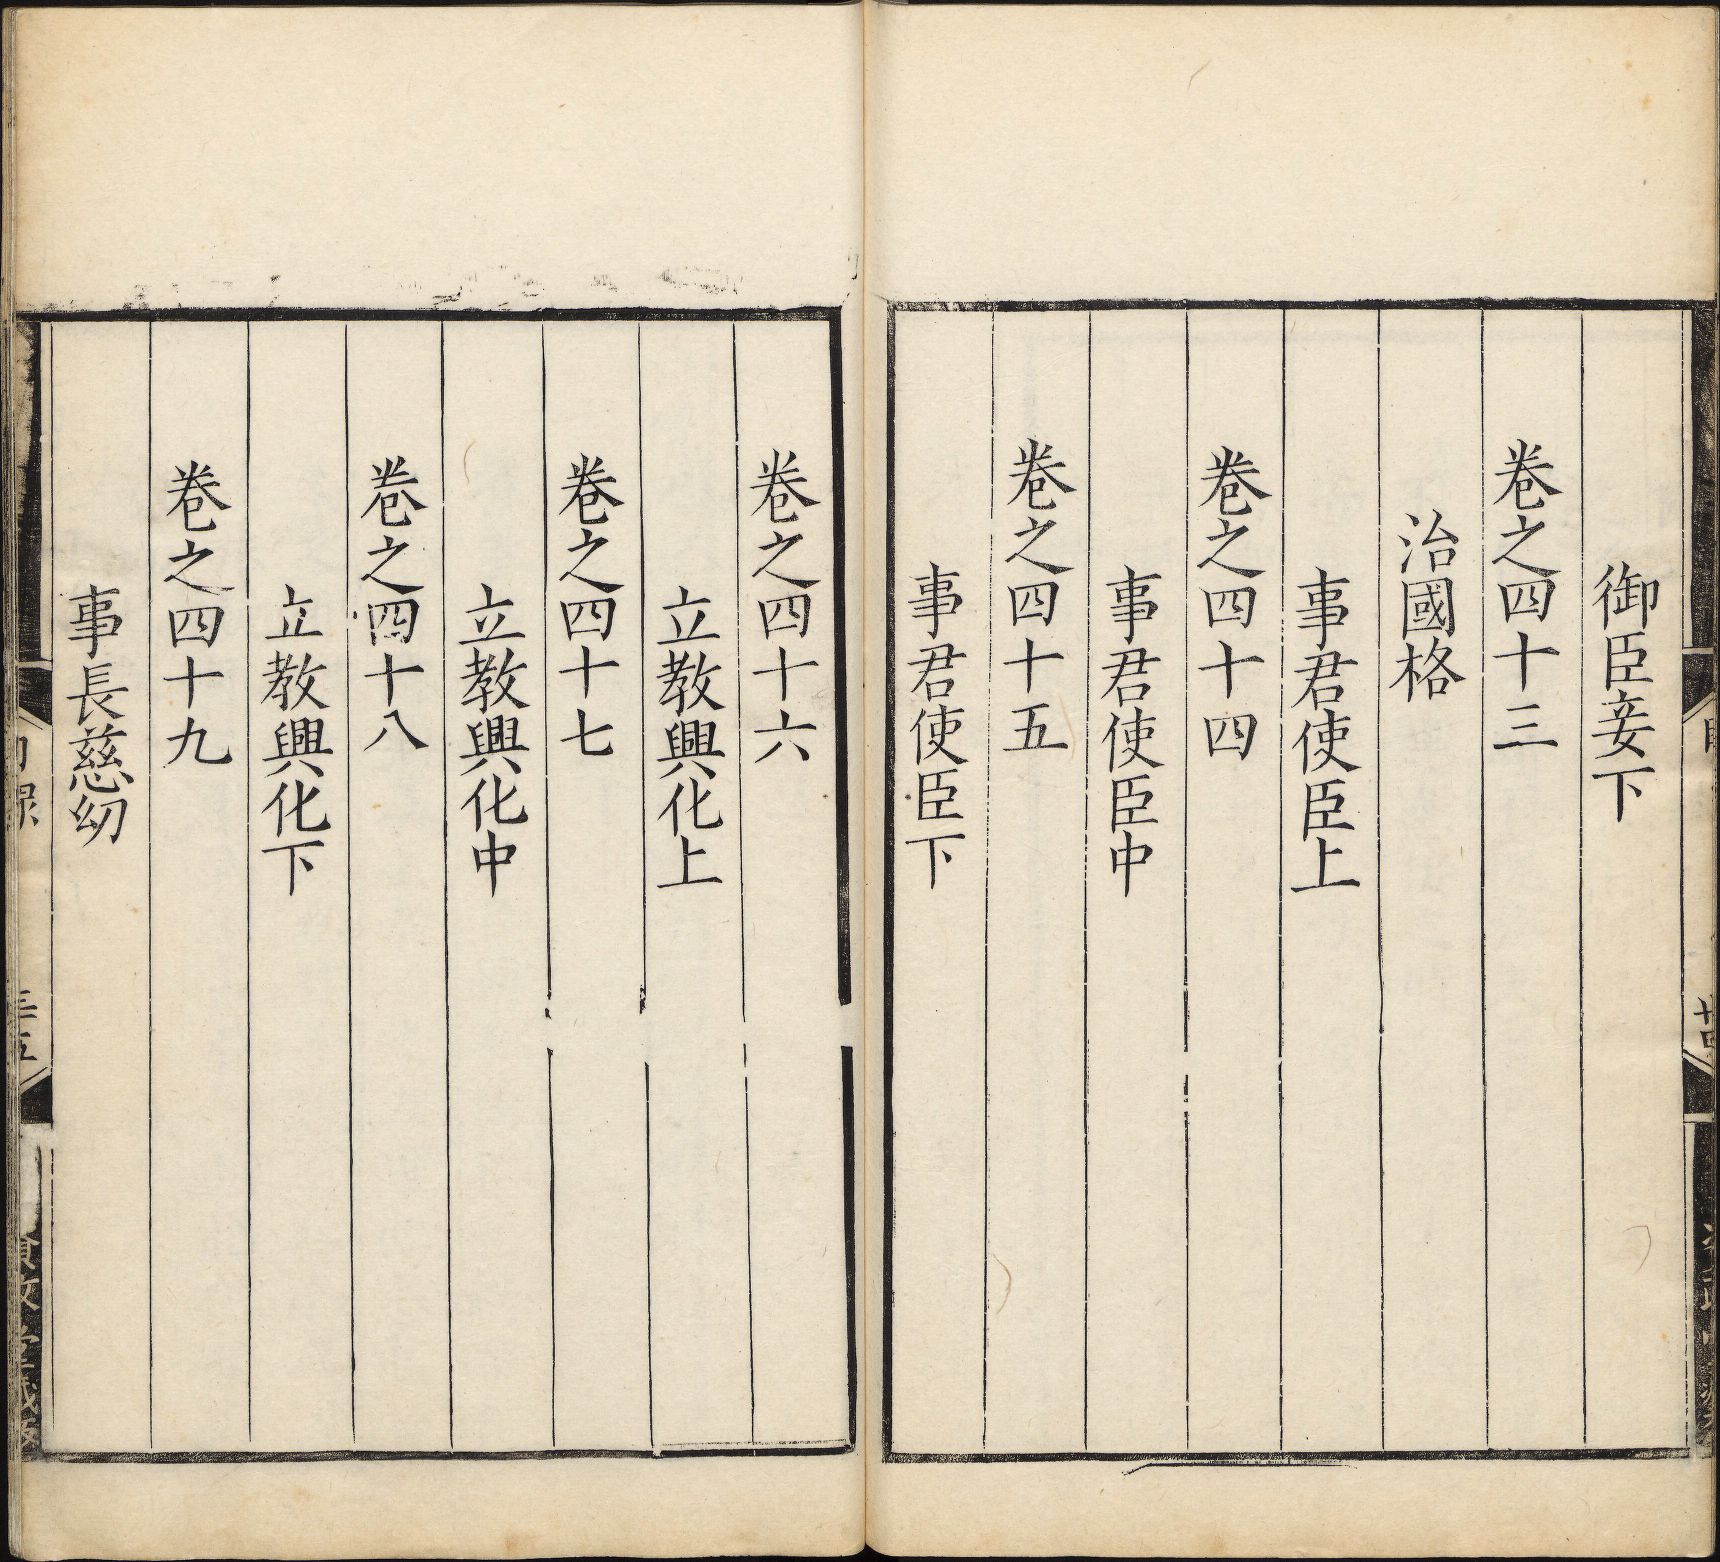 御臣妾下
卷之四十三
治國格
事君使臣上
卷之四十四
事君使臣中
卷之四十五
事君使臣下
卷之四十六
立教興化上
卷之四十七
立教興化中
卷之四十八
立教興化下
卷之四十九
事長慈幼